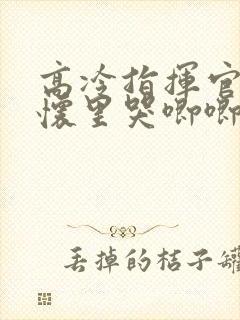 高冷指揮官
懷里哭唧唧
丢掉的桔子罐